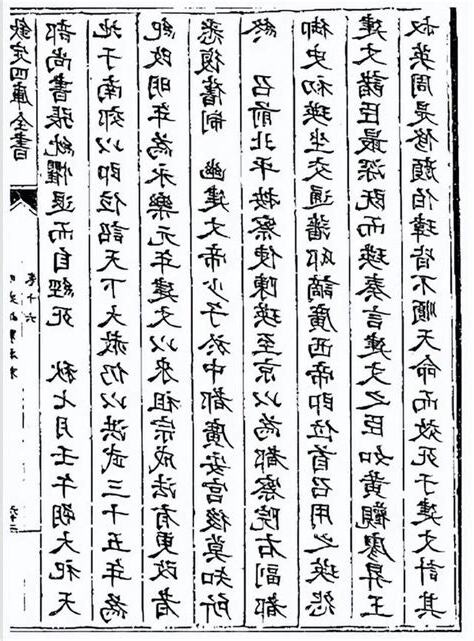 欽定四庫全書
卷十六
明史紀事本末
部尚書張紞懼退而自經死　秋七月壬午朔大祀天
地于南郊以即位詔天下大赦仍以洪武三十五年為
紀改明年為永樂元年建文以來祖宗成法有更改者
悉復舊制　幽建文帝少子於中都廣安宮後莫知所
終　召前北平按察使陳瑛至京以為都察院右副都
御史初瑛坐交通藩邸謫廣西帝即位首召用之瑛怨
建文諸臣最深既而瑛奏言建文之臣如黃觀廖昇王
叔英周是修顏伯瑋皆不順天命而效死于建文計其